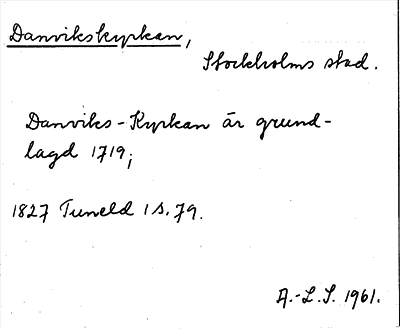 Danvikskyrkan,
Stockholms stad.
Danviks-Kyrkan är grund-
lagd 1719;
1827 Tuneld 1 s. 79.
A.-L.S. 1961.